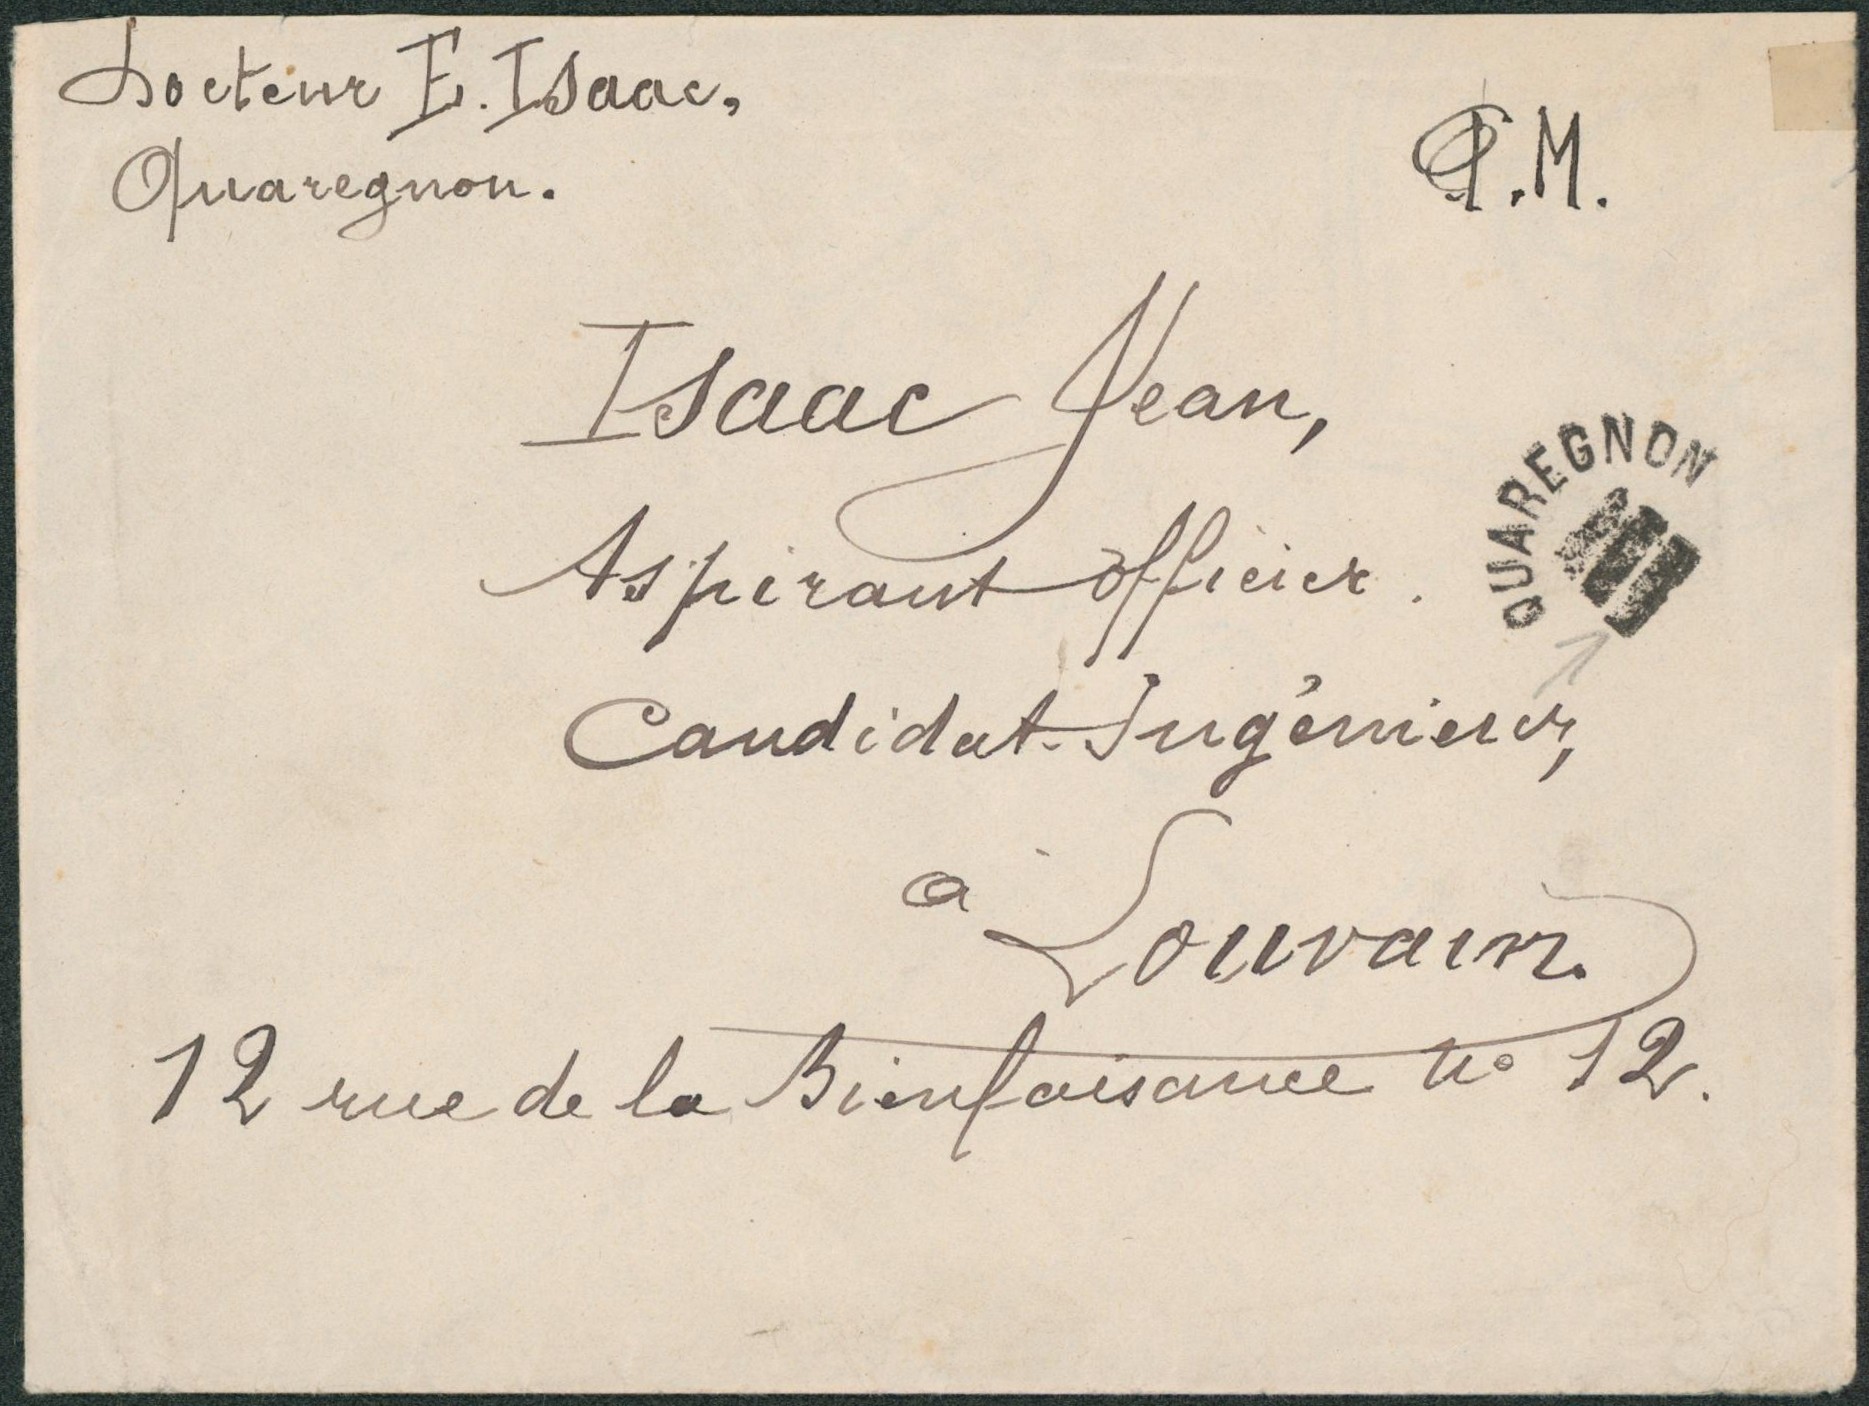 Docteur E. Isaac,
Quaregnon.
S.M.
Isaac Jean,
Aspirant officier.
Candidat-Ingénieur,
QUAREGNON
à Louvain.
12 rue de la Bienfaisance n° 12.